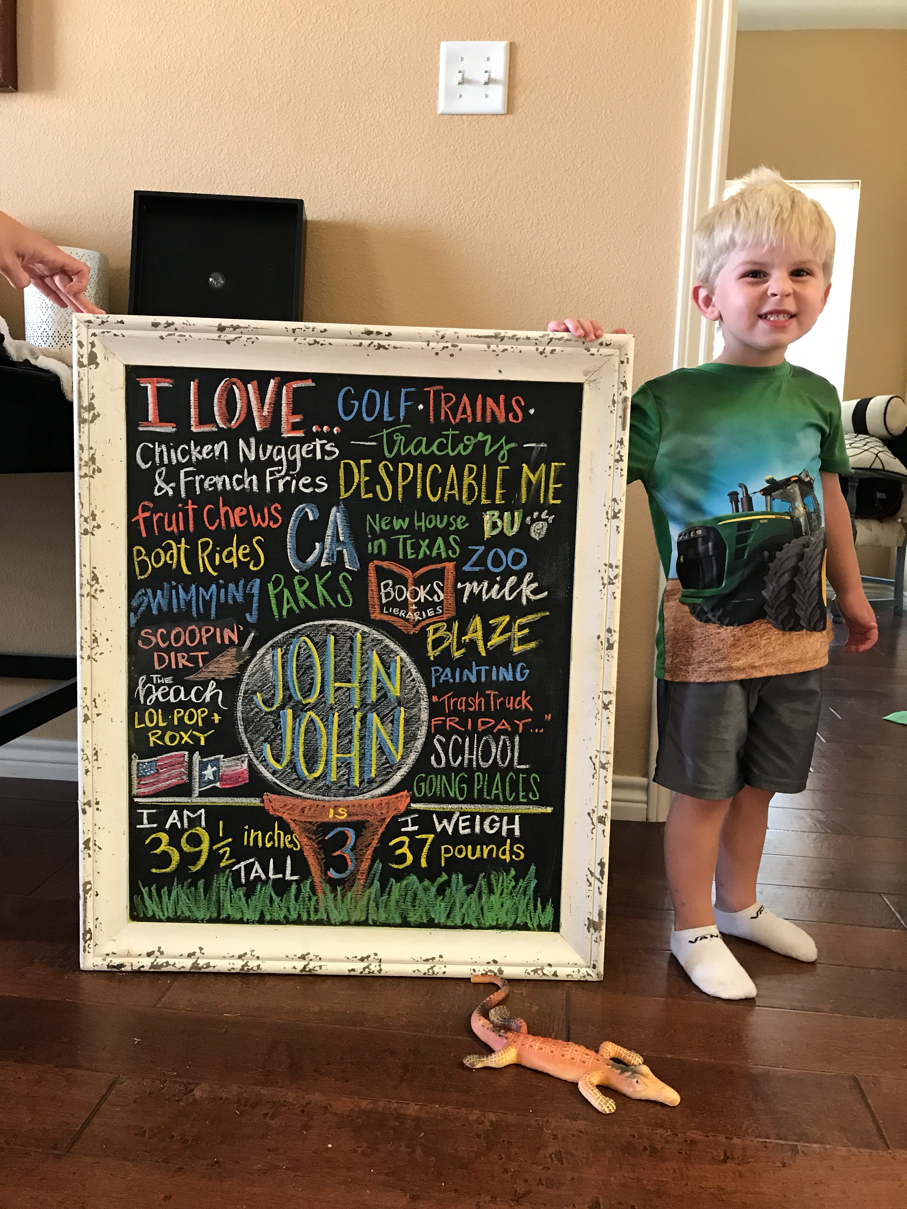 I LOVE...
GOLF · TRAINS ·
— tractors —
Chicken Nuggets
& French Fries
DESPICABLE ME
fruit chews
CA
New House
in TEXAS
BU
Boat Rides
ZOO
SWIMMING
PARKS
BOOKS
+
LIBRARIES
milk
SCOOPIN'
DIRT
BLAZE
THE
beach
JOHN
JOHN
PAINTING
LOL·POP +
ROXY
"Trash Truck
FRIDAY..."
SCHOOL
GOING PLACES
IS
3
I AM
39 1/2 inches
TALL
I WEIGH
37 pounds
VANS